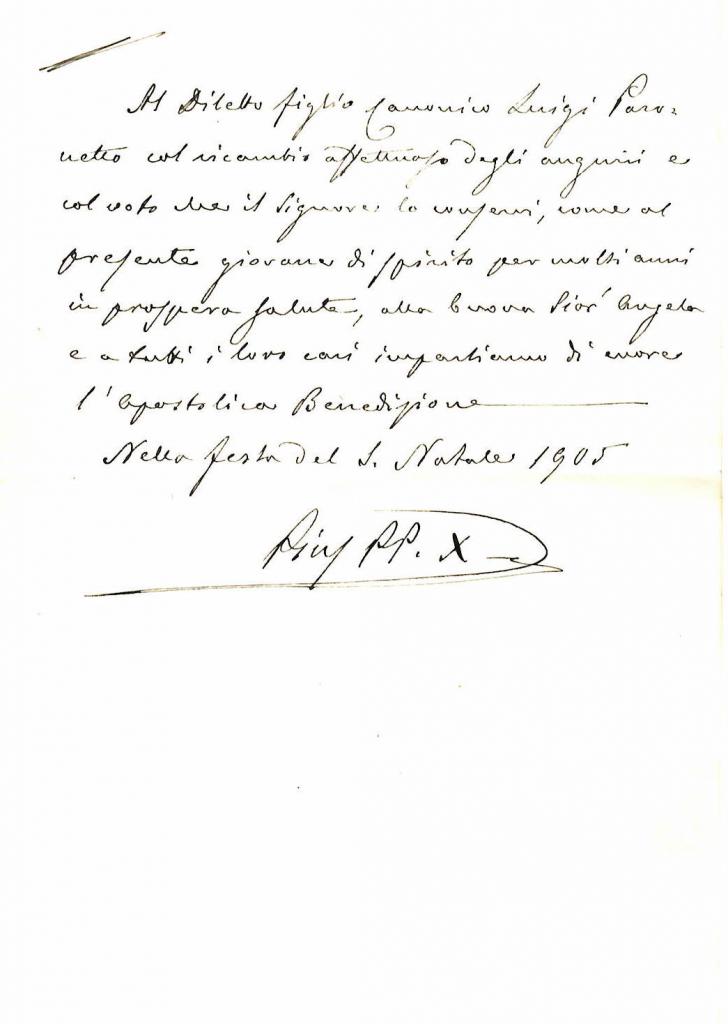 Al Diletto figlio Canonico Luigi Paro-
netto col ricambio affettuoso degli augurii e
col voto che il Signore lo conservi, come al
presente giovane di spirito per molti anni
in prospera salute, alla buona Sior' Angela
e a tutti i loro cari impartiamo di cuore
l'Apostolica Benedizione
Nella festa del S. Natale 1905
Pius PP. X